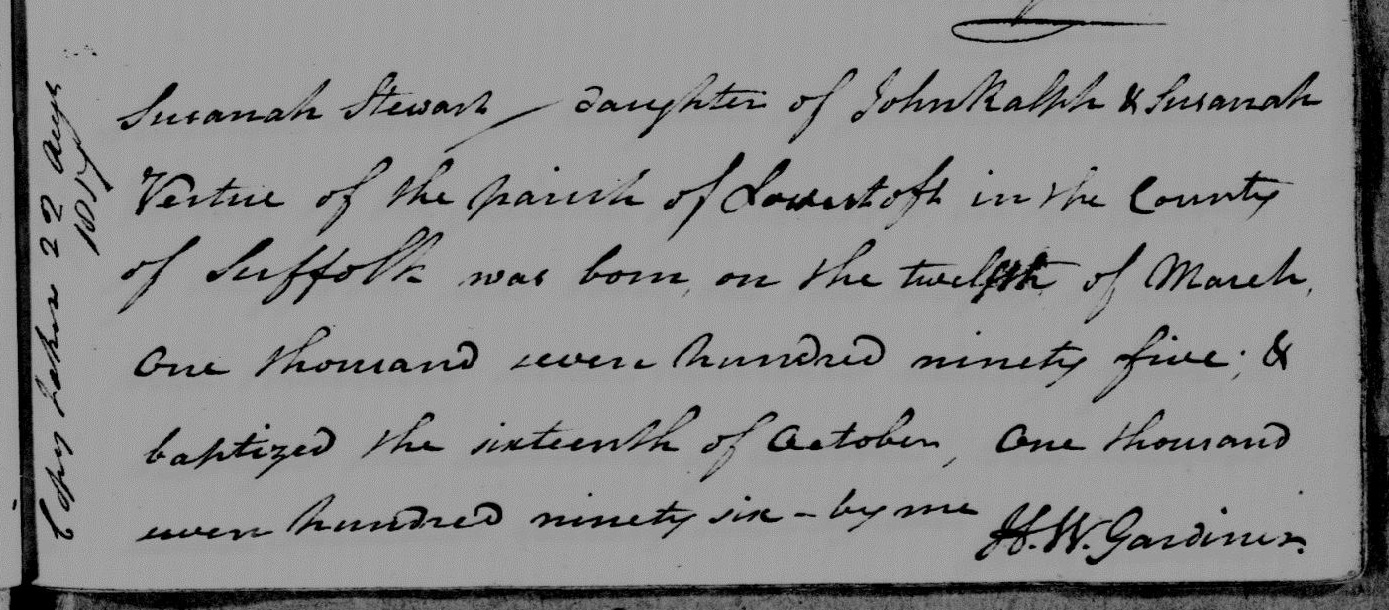 Susanah Stewart daughter of John Ralph & Susanah
Vertue of the parish of Lowestoft in the County
of Suffolk was born, on the twelfth of March,
One thousand seven hundred ninety five; &
baptized the sixteenth of October, One thousand
seven hundred ninety six - by me H. W. Gardiner.
Copy taken 22 Augt
1817